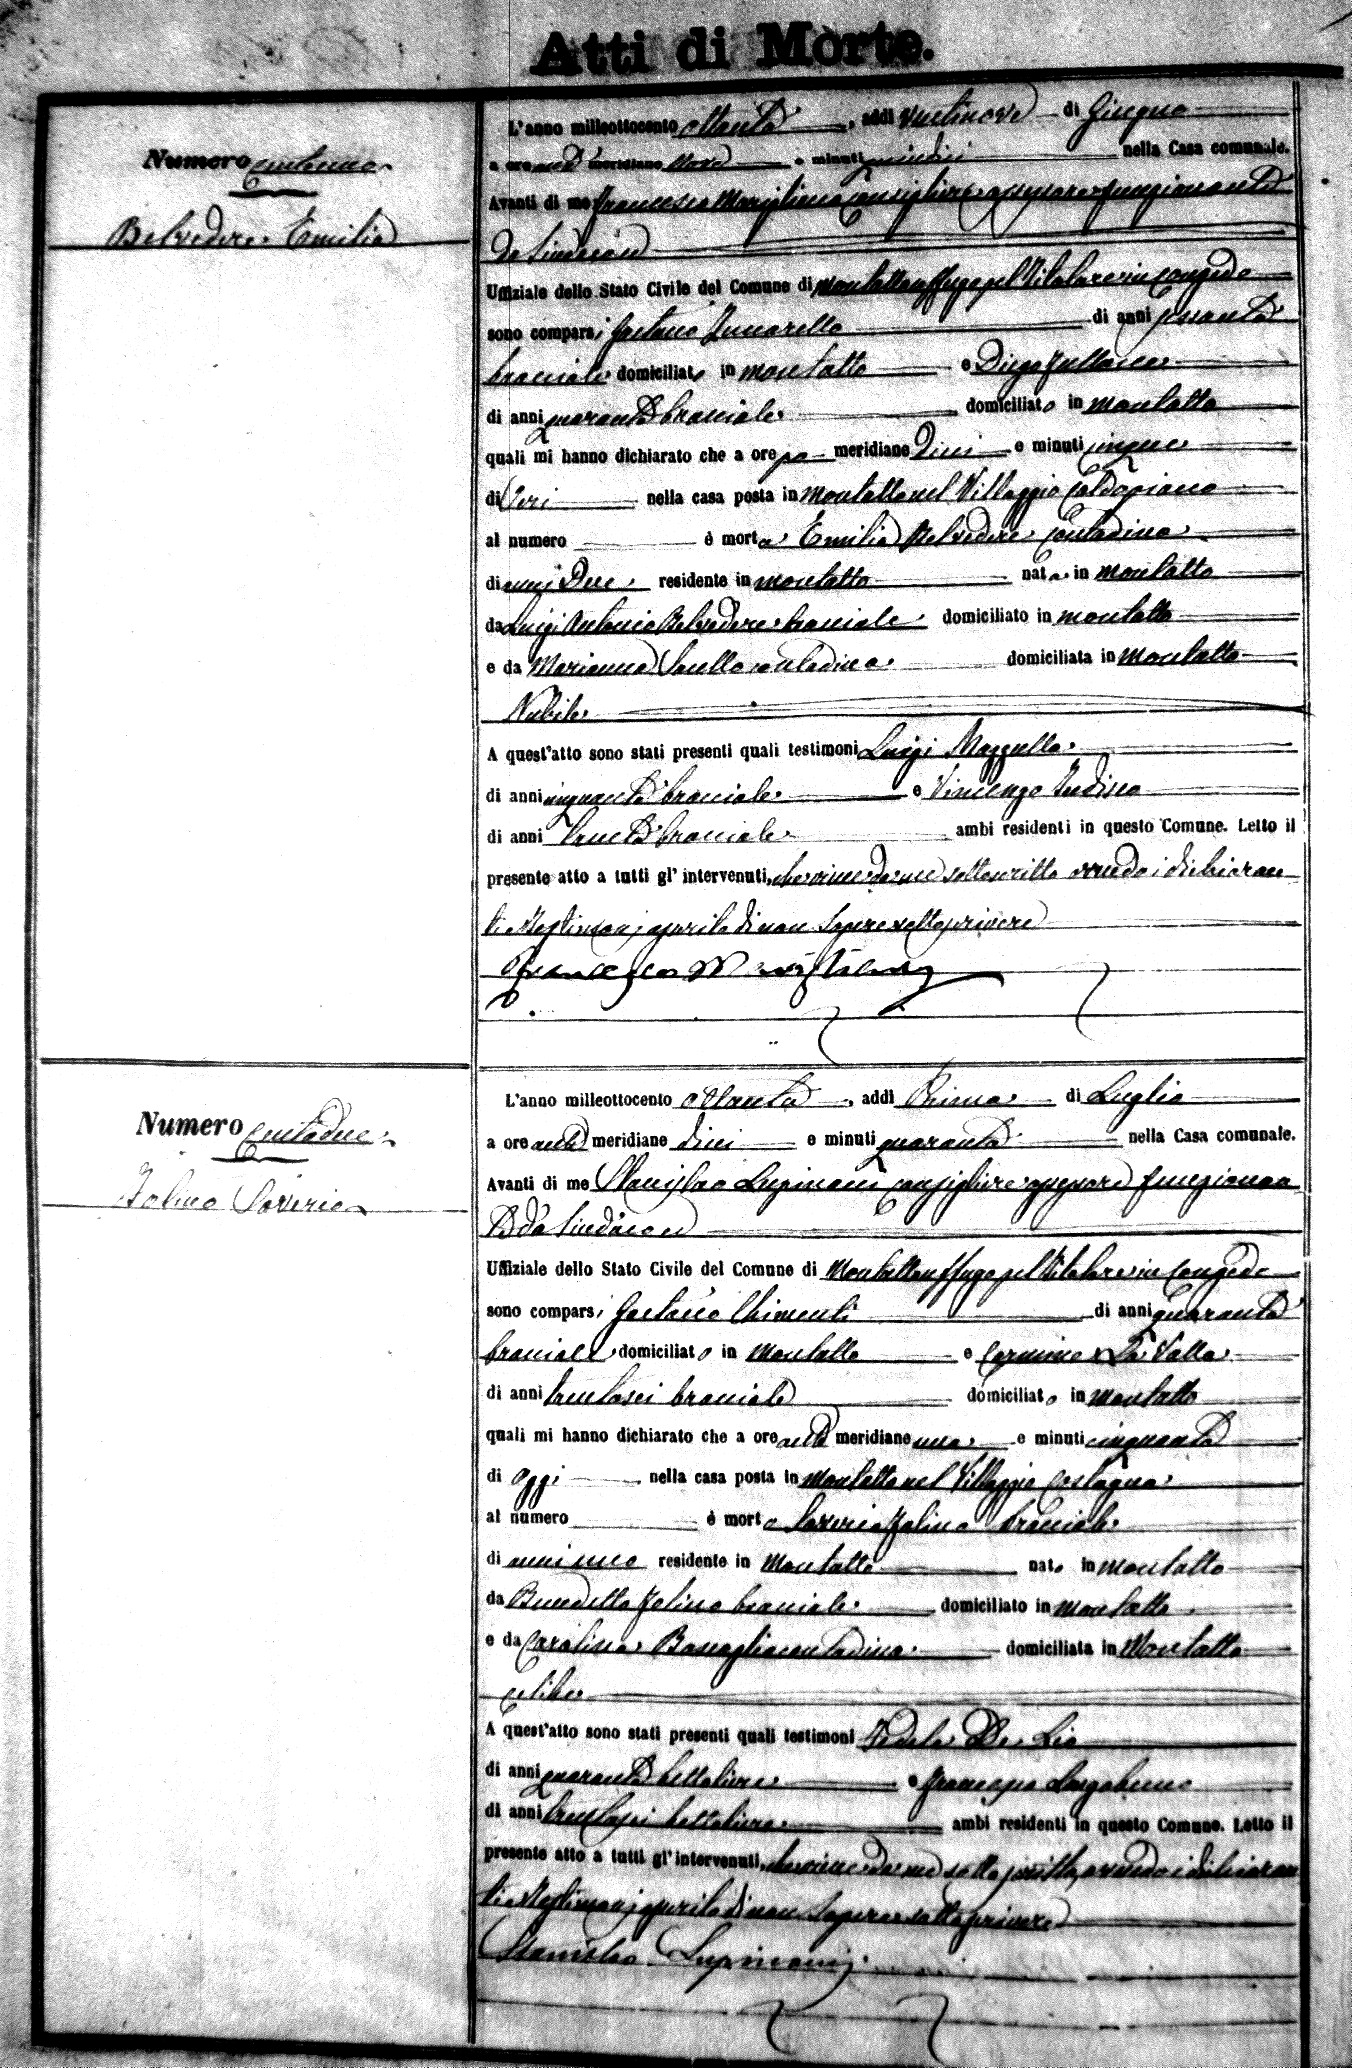 Atti di Morte.
Numero centouno
Belvedere Emilia
L'anno milleottocento ottanta, addì ventinove di Giugno
a ore anti meridiane nove e minuti quindici nella Casa comunale.
Avanti di me Francesco Consigliere assessore funzionante
da Sindaco
Uffiziale dello Stato Civile del Comune di Montaltouffugo pel titolare in congedo
sono comparsi Gaetano di anni sessanta
bracciale domiciliato in Montalto e Diego
di anni quaranta bracciale domiciliato in Montalto
quali mi hanno dichiarato che a ore po meridiane dieci e minuti cinque
di Ieri nella casa posta in Montalto nel Villaggio Caldopiano
al numero è morta Emilia Belvedere contadina
di anni Due residente in Montalto nata in Montalto
da Luigi Antonio Belvedere bracciale domiciliato in Montalto
e da Marianna contadina domiciliata in Montalto
Nubile
A quest'atto sono stati presenti quali testimoni Luigi Mazzulla
di anni cinquanta bracciale e Vincenzo
di anni trenta bracciale ambi residenti in questo Comune. Letto il
presente atto a tutti gl'intervenuti, da me sottoscritto avendo i dichiaran
ti e testimoni asserito di non sapere sottoscrivere
Francesco
Numero centodue
Iolino Saverio
L'anno milleottocento ottanta, addì Primo di Luglio
a ore anti meridiane dieci e minuti quaranta nella Casa comunale.
Avanti di me Stanislao Lupinacci consigliere assessore funzionan
te da Sindaco
Uffiziale dello Stato Civile del Comune di Montaltouffugo pel titolare in congedo
sono comparsi Gaetano Chimenti di anni quaranta
bracciale domiciliato in Montalto e Carmine La Valle
di anni trentasei bracciale domiciliato in Montalto
quali mi hanno dichiarato che a ore anti meridiane una e minuti cinquanta
di oggi nella casa posta in Montalto nel Villaggio Castagna
al numero è morto Saverio Iolino bracciale
di anni uno residente in Montalto nato in Montalto
da Benedetto Iolino bracciale domiciliato in Montalto
e da Carolina contadina domiciliata in Montalto
celibe
A quest'atto sono stati presenti quali testimoni Fedele De Lio
di anni quaranta bettoliere e Francesco
di anni trentasei bettoliere ambi residenti in questo Comune. Letto il
presente atto a tutti gl'intervenuti, da me sottoscritto, avendo i dichiaran
ti e testimoni asserito di non sapere sottoscrivere
Stanislao Lupinacci